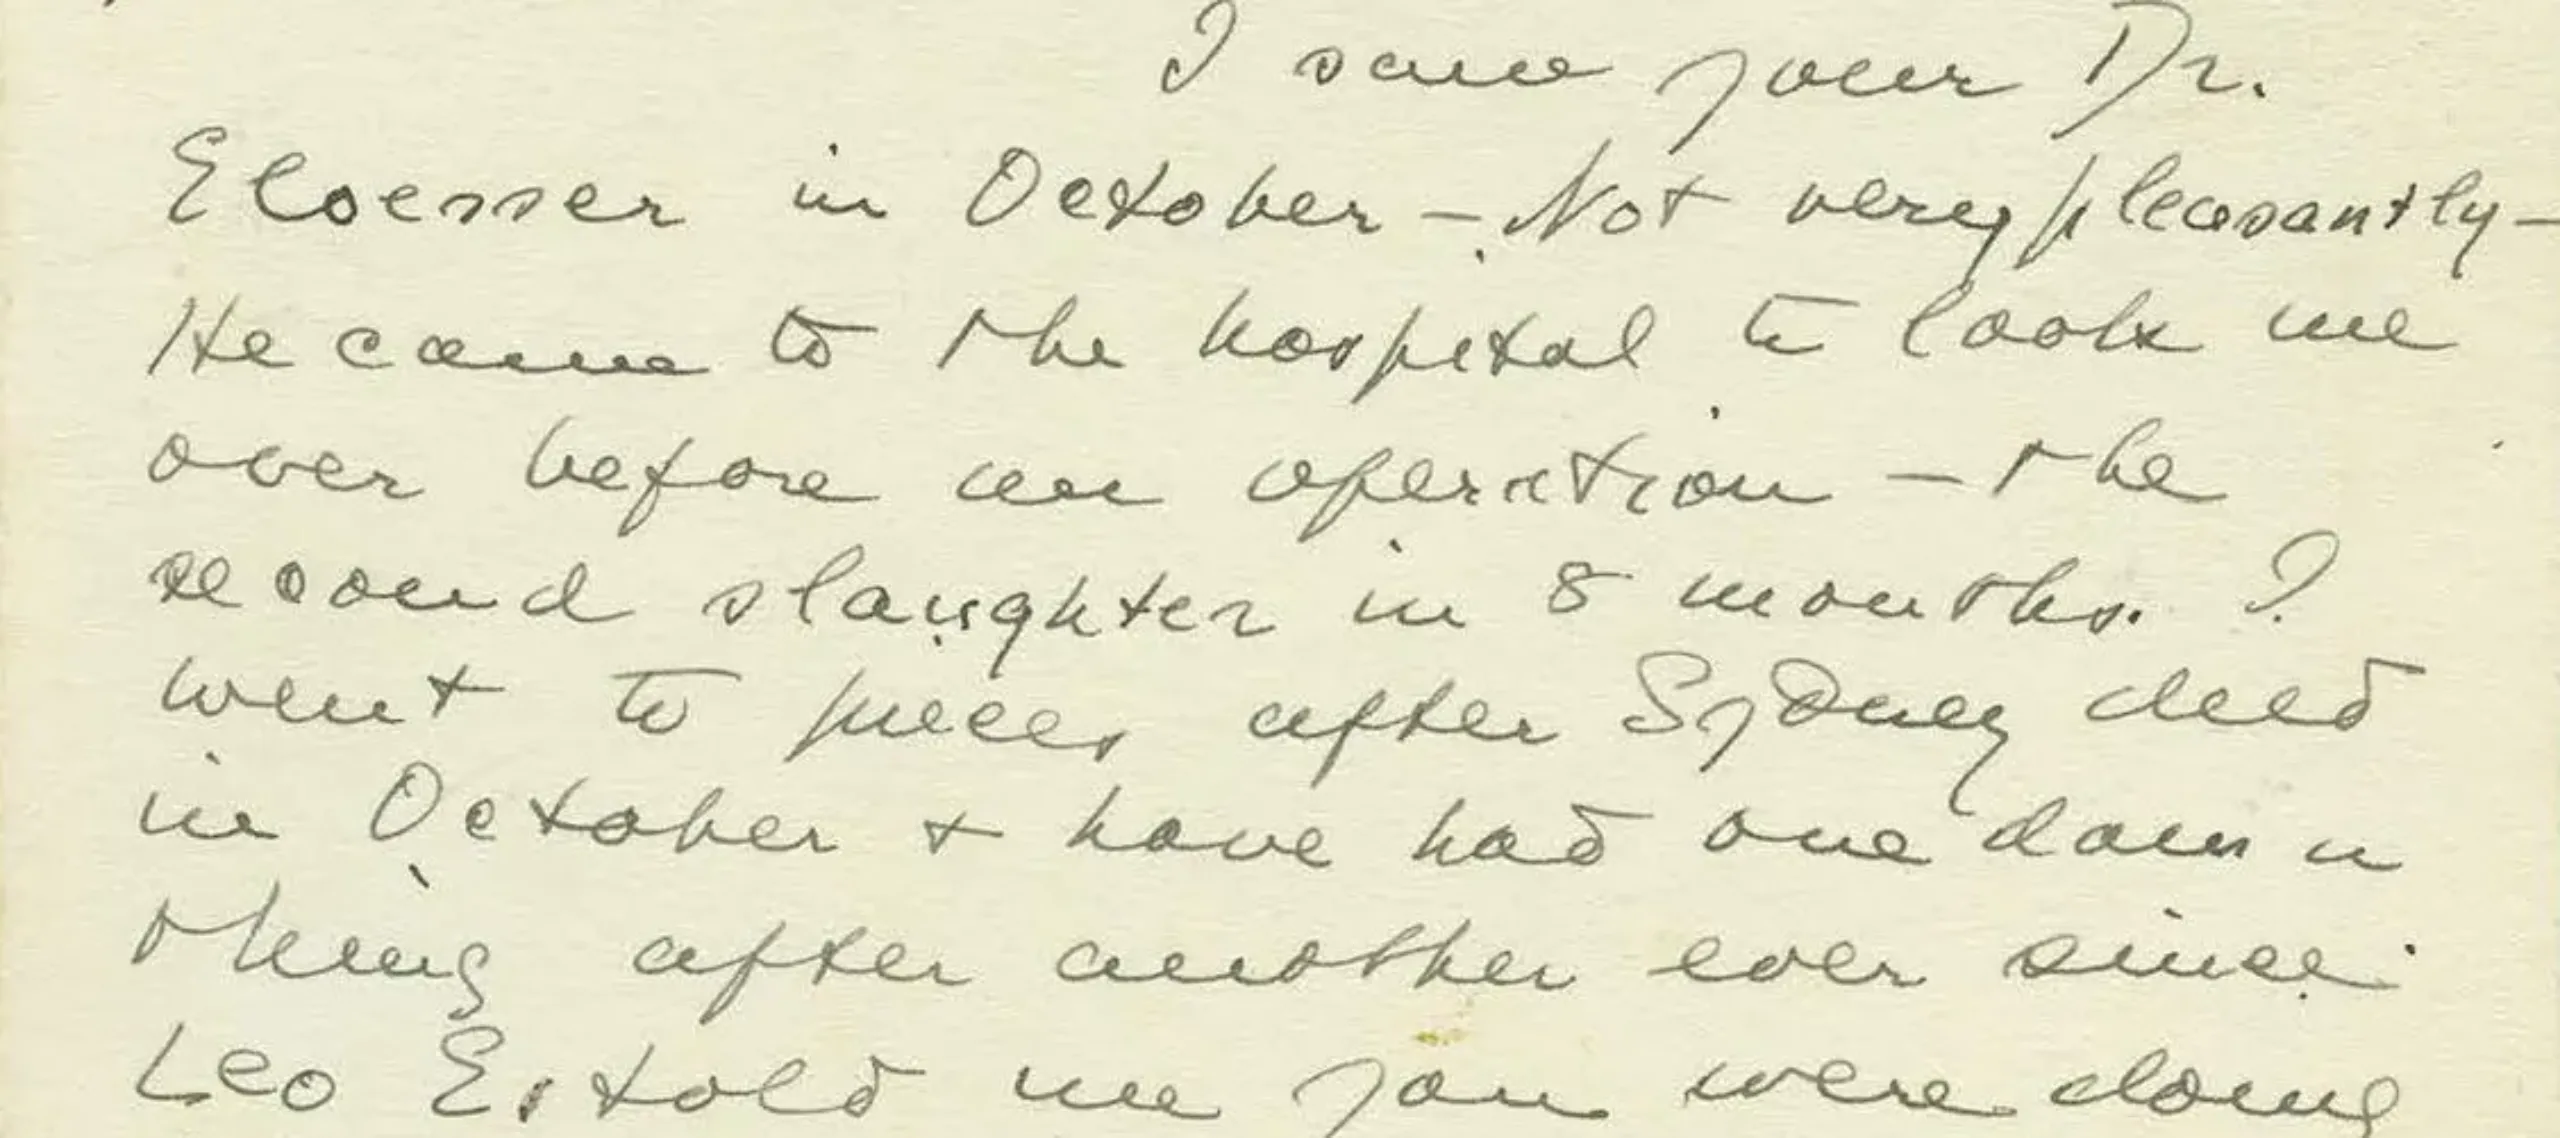 I saw your Dr.
Eloesser in October – Not very pleasantly –
He came to the hospital to look me
over before an operation – the
second slaughter in 8 months. I
went to pieces after Sydney died
in October + have had one damn
thing after another ever since.
Leo E. told me you were doing